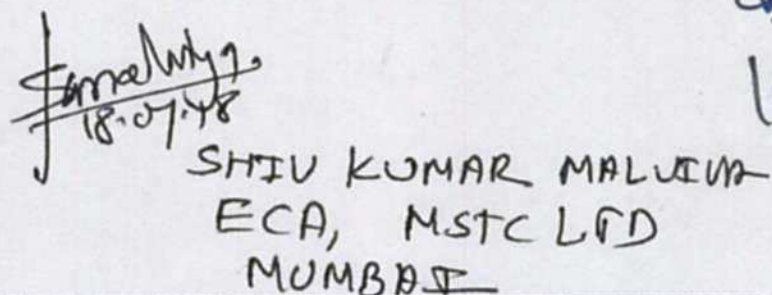 18.07.18
SHIV KUMAR MALVIYA
ECA, MSTC LTD
MUMBAI